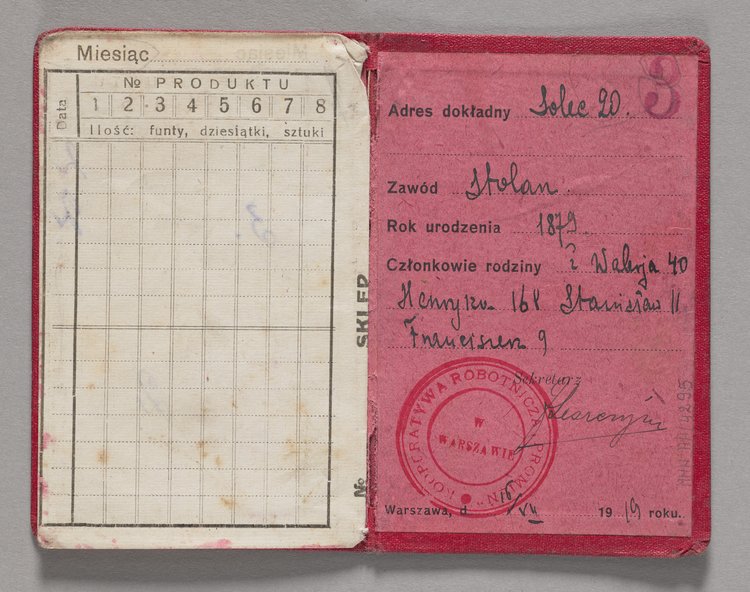 Miesiąc
Data
№ PRODUKTU
1 2 3 4 5 6 7 8
Ilość: funty, dziesiątki, sztuki
3.
SKLEP
№
3
Adres dokładny Solec 20.
Zawód Stolarz
Rok urodzenia 1879
Członkowie rodziny ż Walerja 40
Henryka 16 Stanisław 11
Franciszek 9
Sekretarz
KOOPERATYWA ROBOTNICZA "PROMIEŃ"
W
WARSZAWIE
Warszawa, d. VII 1919 roku.